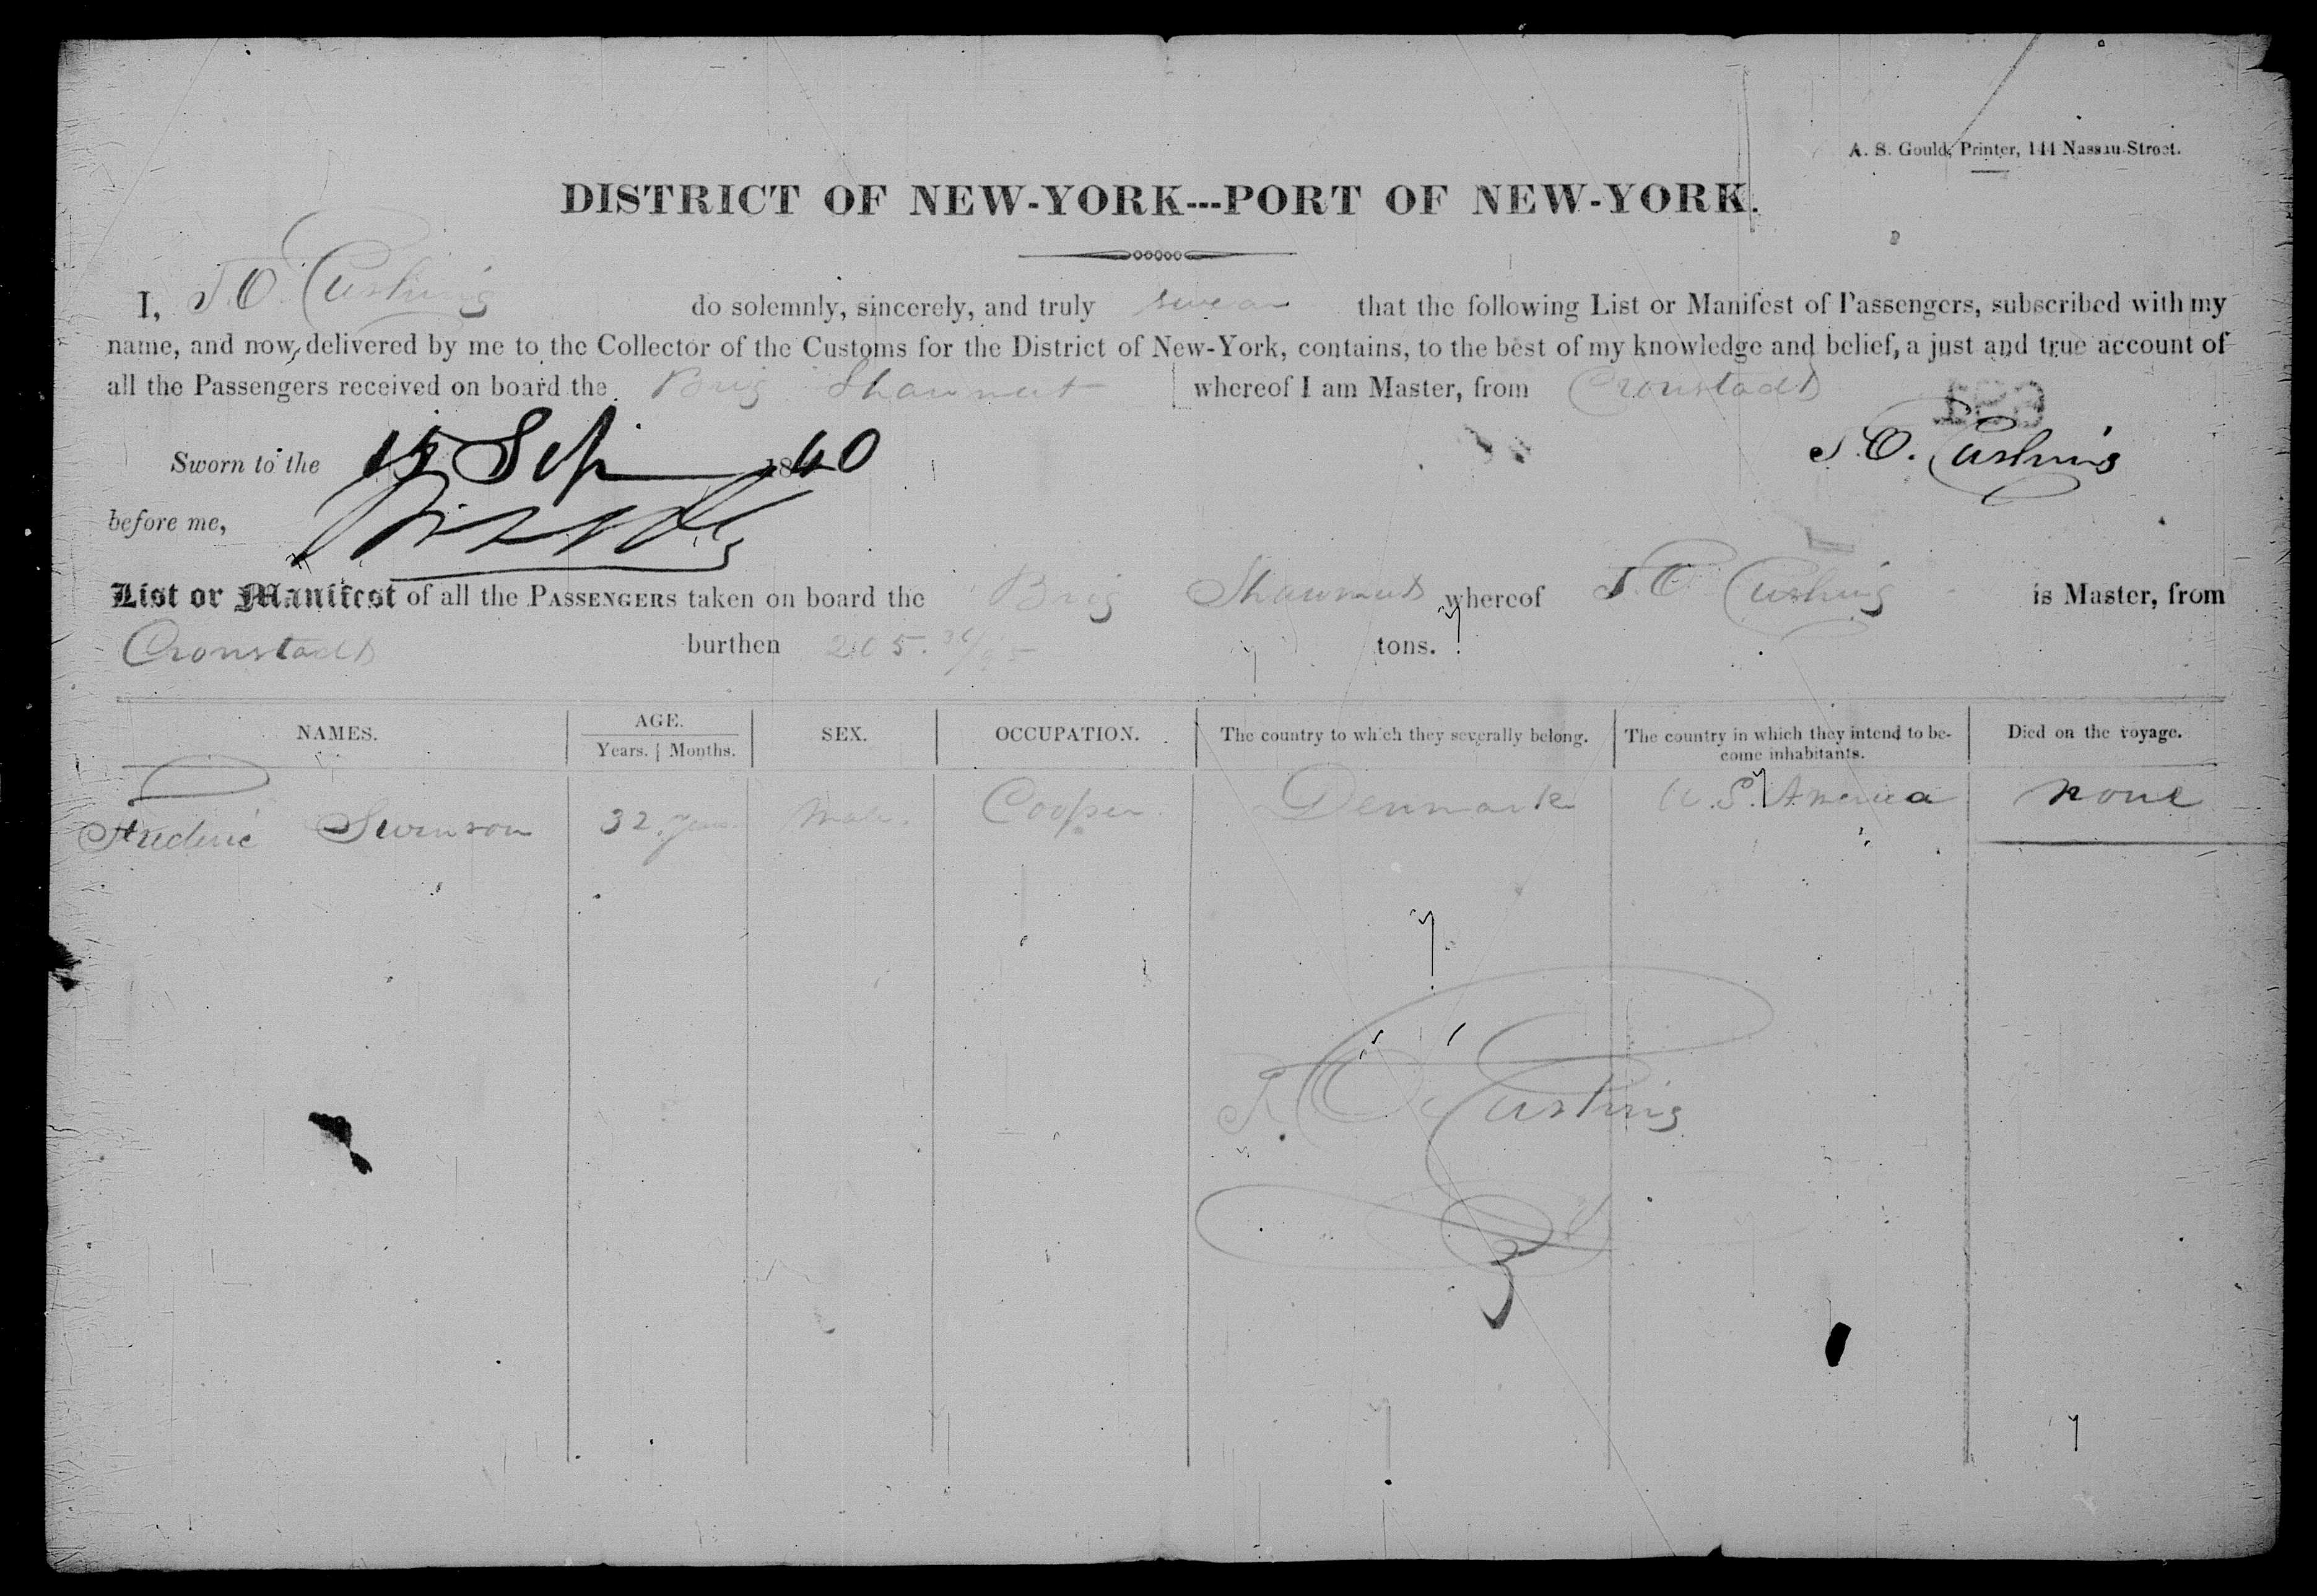 A. S. Gould, Printer, 144 Nassau-Street.
DISTRICT OF NEW-YORK---PORT OF NEW-YORK.
I, T. O. Cushing do solemnly, sincerely, and truly swear that the following List or Manifest of Passengers, subscribed with my
name, and now delivered by me to the Collector of the Customs for the District of New-York, contains, to the best of my knowledge and belief, a just and true account of
all the Passengers received on board the Brig Shawmut whereof I am Master, from Cronstadt
Sworn to the 15 Sep 1840 T. O. Cushing
before me,
List or Manifest of all the PASSENGERS taken on board the Brig Shawmut whereof T. O. Cushing is Master, from
Cronstadt burthen 205. tons.
NAMES. AGE. SEX. OCCUPATION. The country to which they severally belong. The country in which they intend to be- Died on the voyage.
Years. Months. come inhabitants.
Frederic Swenson 32 years Male. Cooper Denmark U. S. America none
T. O. Cushing